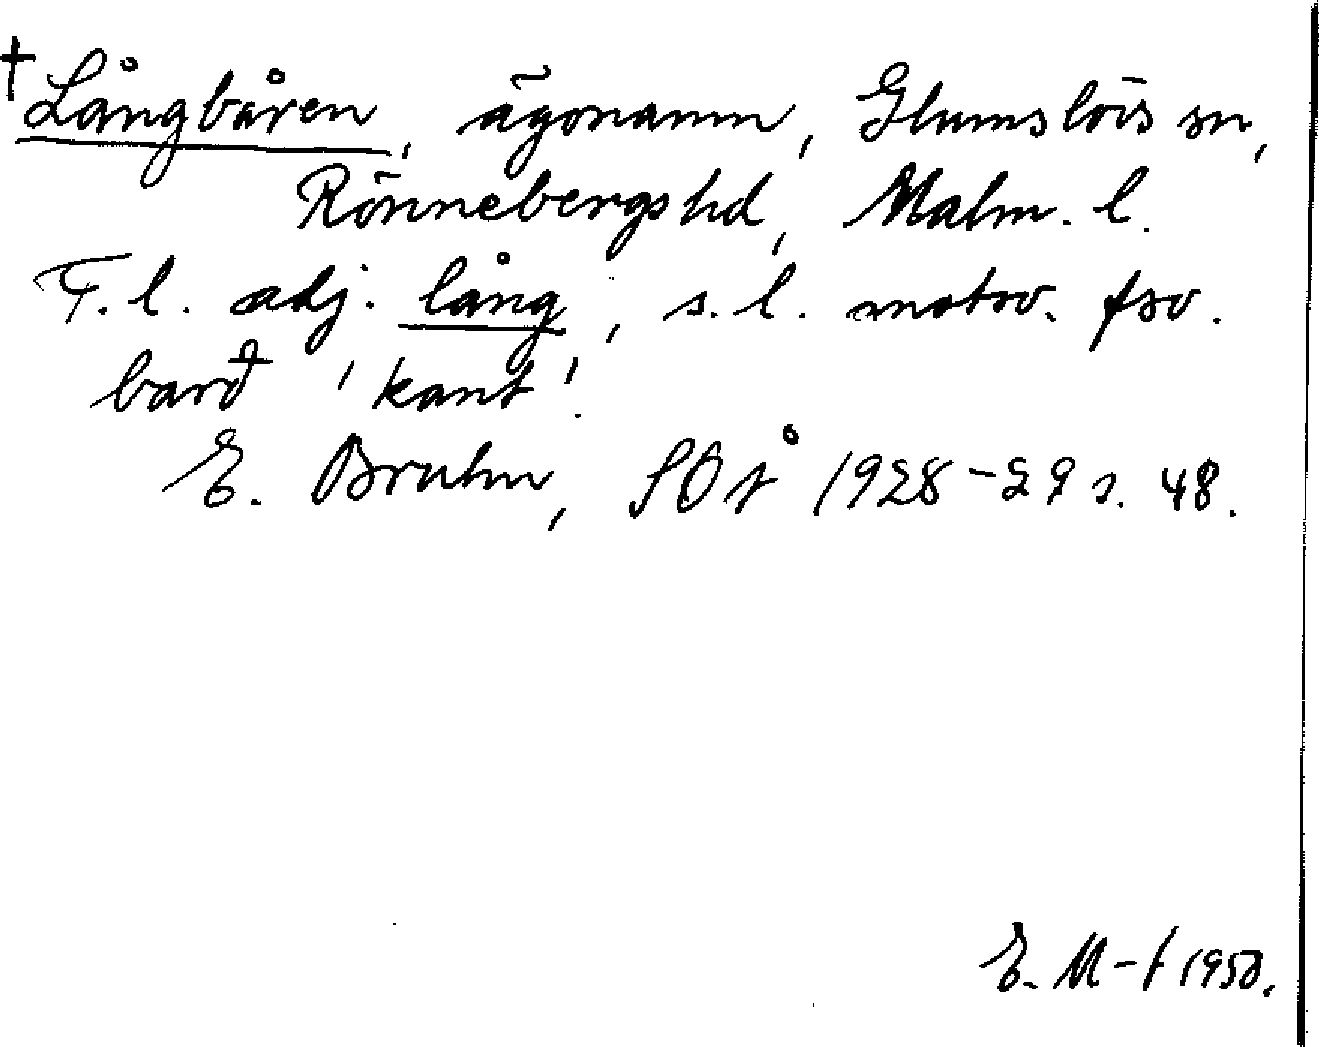 †Långbåren, ägonamn, Glumslövs sn,
Rönnebergs hd, Malm. l.
F.l. adj. lång, s.l. motsv. fsv.
barđ 'kant'.
E. Bruhn, SOÅ 1928-29 s. 48.
E. M-t 1950.